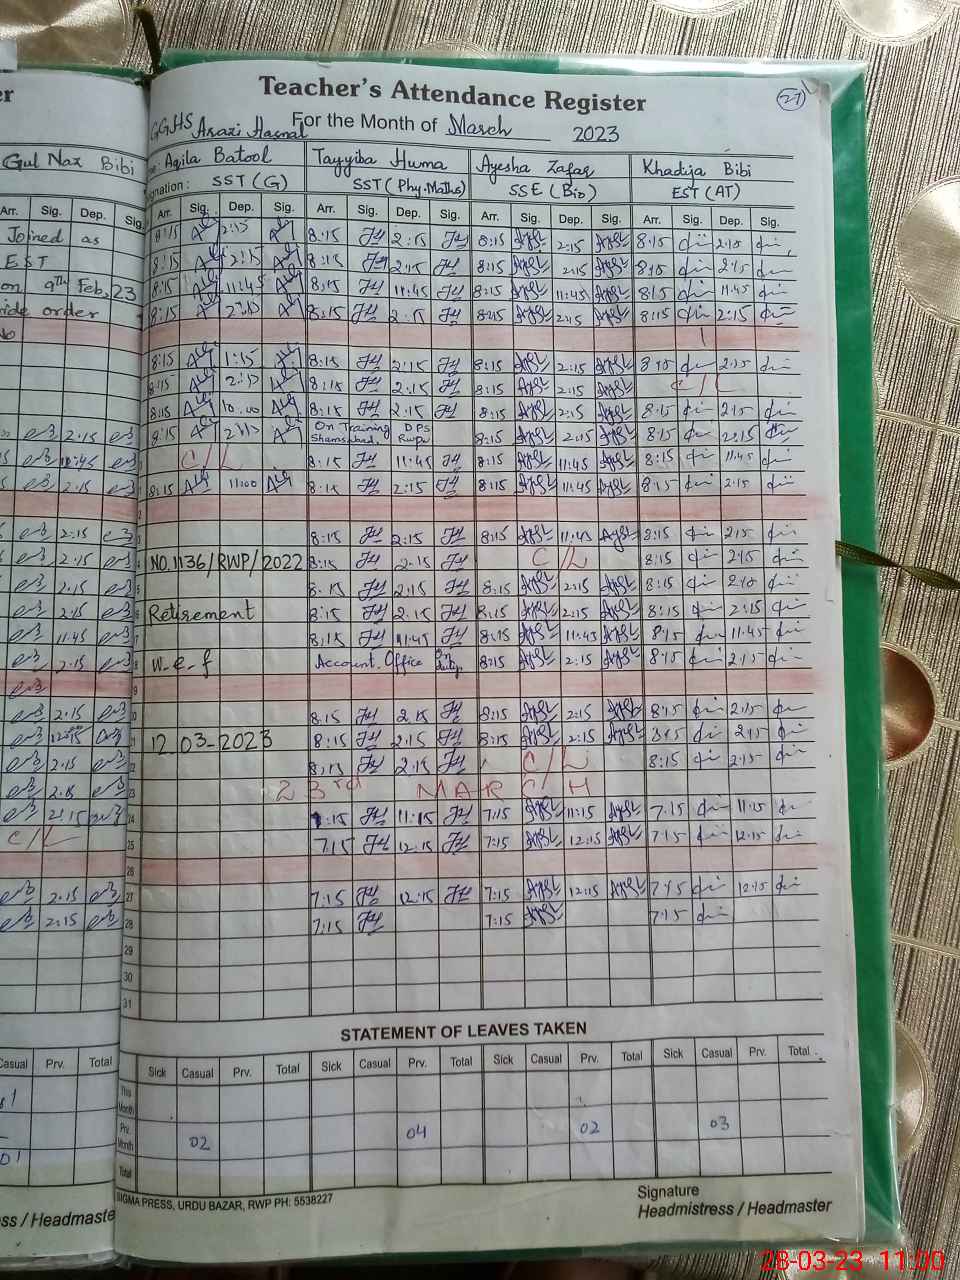 er
Teacher's Attendance Register
27
GGHS Arazi Hasnal For the Month of March 2023
Gul Naz Bibi : Aqila Batool Tayyiba Huma Ayesha Zafar Khadija Bibi
gnation: SST (G) SST (Phy-Maths) SSE (Bio) EST (AT)
Arr. Sig. Dep. Sig. Arr. Sig. Dep. Sig. Arr. Sig. Dep. Sig. Arr. Sig. Dep. Sig. Arr. Sig. Dep. Sig.
Joined as 8:15 2:15 8:15 2:15 8:15 2:15 8:15 2:15
EST 8:15 2:15 8:15 2:15 8:15 2:15 8:15 2:15
on 9th Feb, 23 8:15 11:45 8:15 11:45 8:15 11:45 8:15 11:45
vide order 8:15 2:15 8:15 2:15 8:15 2:15 8:15 2:15
No
8:15 1:15 8:15 2:15 8:15 2:15 8:15 2:15
8:15 2:15 8:15 2:15 8:15 2:15 C/L
8:15 10:00 8:15 2:15 8:15 2:15 8:15 2:15
2:15 8:15 2:15 On Training DPS Shamsabad, Rwp 8:15 2:15 8:15 2:15
C/L 8:15 11:45 8:15 11:45 8:15 11:45
2:15 8:15 11:00 8:15 2:15 8:15 11:45 8:15 2:15
2
2:15 3 8:15 2:15 8:15 11:45 8:15 2:15
2:15 4 NO. 1136/RWP/2022 8:15 2:15 C/L 8:15 2:15
2:15 5 8:15 2:15 8:15 2:15 8:15 2:15
2:15 6 Retirement 8:15 2:15 8:15 2:15 8:15 2:15
11:45 7 8:15 11:45 8:15 11:45 8:15 11:45
2:15 8 w.e.f Account Office On duty 8:15 2:15 8:15 2:15
9
2:15 8:15 2:15 8:15 2:15 8:15 2:15
21 12.03-2023 8:15 2:15 8:15 2:15 8:15 2:15
2:15 22 8:15 2:15 C/L 8:15 2:15
2:15 23 23rd MARCH
2:15 24 7:15 11:15 7:15 11:15 7:15 11:15
C/L 25 7:15 12:15 7:15 12:15 7:15 12:15
26
2:15 27 7:15 12:15 7:15 12:15 7:15 12:15
2:15 28 7:15 7:15 7:15
29
30
31
STATEMENT OF LEAVES TAKEN
Casual Prv. Total Sick Casual Prv. Total Sick Casual Prv. Total Sick Casual Prv. Total Sick Casual Prv. Total
This Month
Prv. Month 02 04 02 03
01 Total
SIGMA PRESS, URDU BAZAR, RWP PH: 5538227
Signature
ess / Headmaste Headmistress / Headmaster
28-03-23 11:00